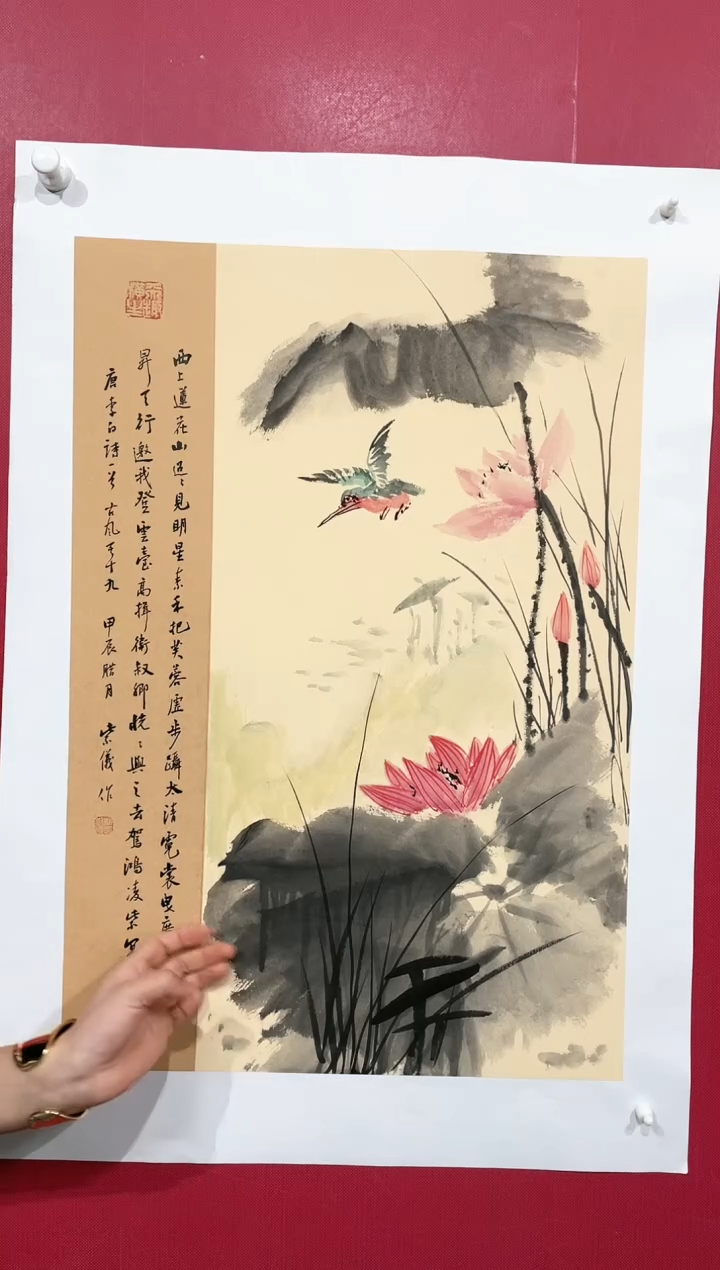 西上蓮花山迢〻見明星素手把芙蓉虛步躡太清霓裳曳廣
昇天行邀我登雲臺高揖衛叔卿恍〻與之去駕鴻凌紫冥
唐李白詩一首 古風其十九 甲辰腊月 紫儀作